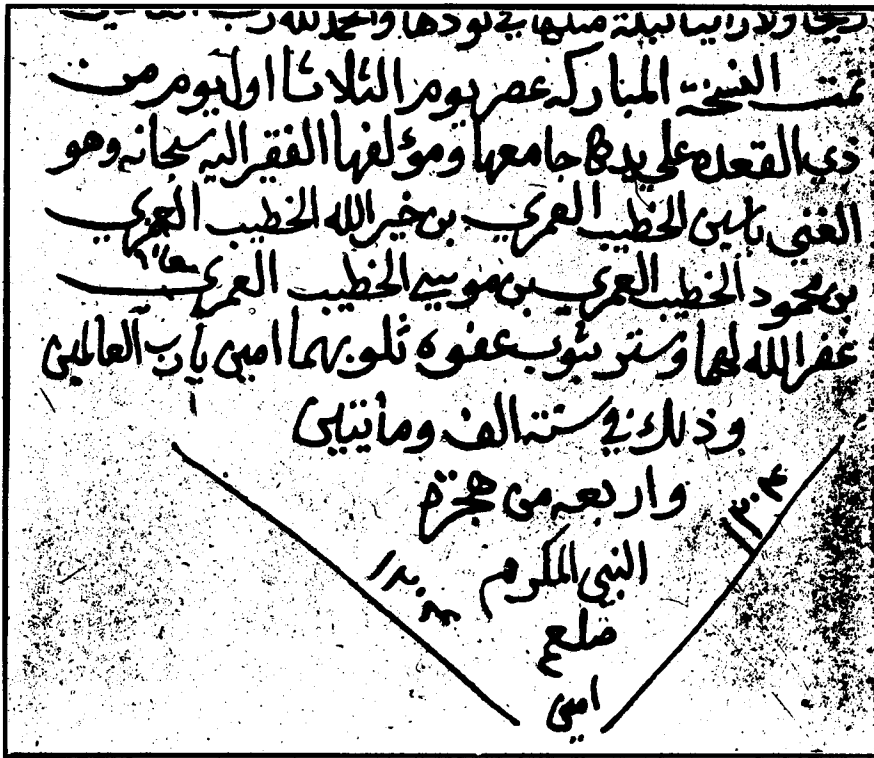 ريحا ولا راينا ليلة مثلها في نودها والحمد لله رب العالمين
تمت النسخة المباركه عصر يوم الثلاثا اول يوم من
ذي القعده علي يد جامعها ومؤلفها الفقير اليه سبحانه وهو
الغني ياسين الخطيب العمري بن خير الله الخطيب العمري
بن محمود الخطيب العمري بن موسي الخطيب العمري
غفر الله لهما وستر بثوب عفوه ذنوبهما امين يا رب العالمين
وذلك في سنة الف ومأتين
واربعه من هجرة
النبي المكرم
صلعم
امين
١٢٠٤
١٢٠٤